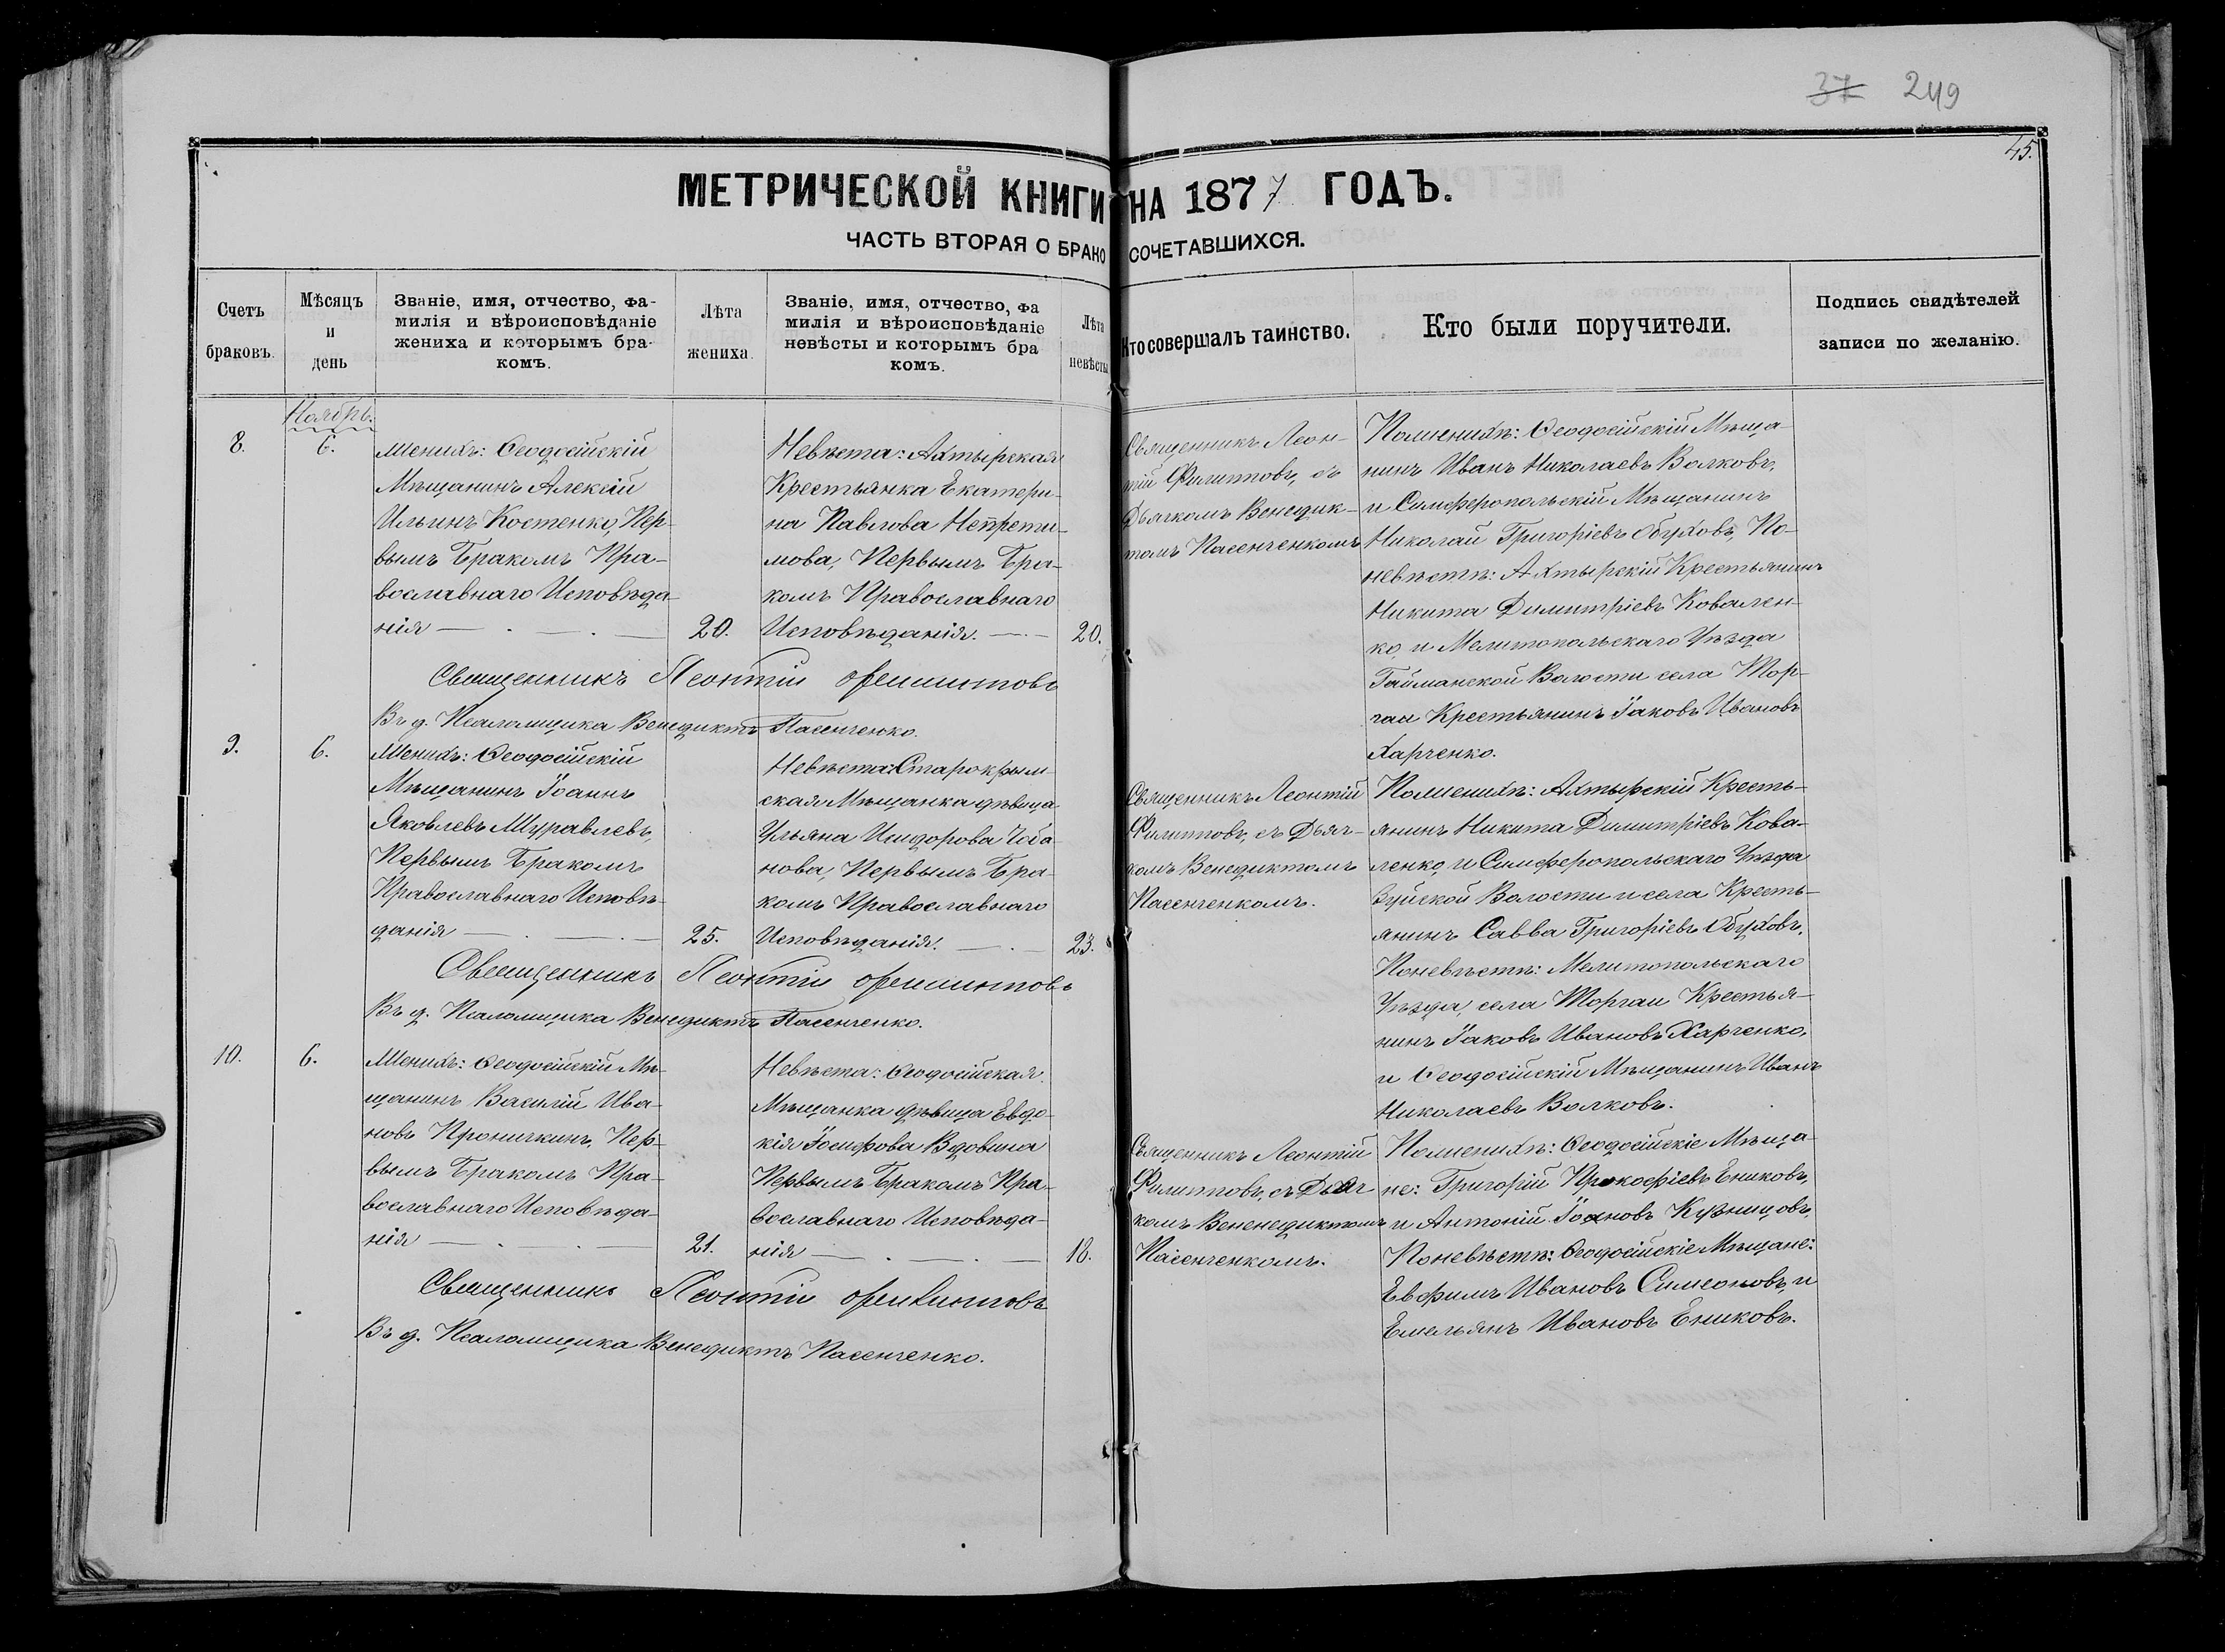 37 249
45.
МЕТРИЧЕСКОЙ КНИГИ НА 1877 ГОДЪ.
ЧАСТЬ ВТОРАЯ О БРАКОСОЧЕТАВШИХСЯ.
Счетъ браковъ.
Мѣсяцъ и день
Званіе, имя, отчество, фа-
милія и вѣроисповѣданіе
жениха и которымъ бра-
комъ.
Лѣта жениха.
Званіе, имя, отчество, фа
милія и вѣроисповѣданіе
невѣсты и которымъ бра
комъ.
Лѣта невѣсты
Кто совершалъ таинство.
Кто были поручители.
Подпись свидѣтелей
записи по желанію.
Ноябрь.
8.
6.
Женихъ: Ѳеодосійскій
Мѣщанинъ Алексій
Ильинъ Костенко, Пер-
вымъ Бракомъ Пра-
вославнаго Исповѣда-
нія
20.
Невѣста: Ахтырская
Крестьянка Екатери-
на Павлова
Первымъ Бра-
комъ Православнаго
Исповѣданія.
20.
Священникъ Леон-
тій Филиповъ, съ
Дьячкомъ Венедик-
томъ Пасенченкомъ
Пожениху: Ѳеодосійскій Мѣща-
нинъ Иванъ Николаевъ Волковъ,
и Симферопольскій Мѣщанинъ
Николай Григоріевъ Обуховъ, По-
невѣстѣ: Ахтырскій Крестьянинъ
Никита Димитріевъ Ковален-
ко, и Мелитопольскаго Уѣзда
Гайманской Волости села Тор-
гаи Крестьянинъ Іаковъ Ивановъ
Харченко.
Священникъ Леонтій Филиповъ
Въ д. Псаломщика Венедиктъ Пасенченко.
9.
6.
Женихъ: Ѳеодосійскій
Мѣщанинъ Іоаннъ
Яковлевъ Журавлевъ,
Первымъ Бракомъ
Православнаго Исповѣ-
данія
25.
Невѣста: Старокрым-
ская Мѣщанка дѣвица
Ульяна Исидорова Чеба-
нова, Первымъ Бра-
комъ Православнаго
Исповѣданія.
23.
Священникъ Леонтій
Филиповъ, съ Дьяч-
комъ Венедиктомъ
Пасенченкомъ.
Пожениху: Ахтырскій Кресть-
янинъ Никита Димитріевъ Кова-
ленко, и Симферопольскаго Уѣзда
Зуйской Волости и села Кресть-
янинъ Савва Григоріевъ Обуховъ.
Поневѣстѣ: Мелитопольскаго
Уѣзда, села Торгаи Крестья-
нинъ Іаковъ Ивановъ Харченко,
и Ѳеодосійскій Мѣщанинъ Иванъ
Николаевъ Волковъ.
Священникъ Леонтій Филиповъ
Въ д. Псаломщика Венедиктъ Пасенченко.
10.
6.
Женихъ: Ѳеодосійскій Мѣ-
щанинъ Василій Ива-
новъ Проничкинъ, Пер-
вымъ Бракомъ Пра-
вославнаго Исповѣда-
нія
21.
Невѣста: Ѳеодосійская
Мѣщанка дѣвица Евдо-
кія Іосифова Вдовина
Первымъ Бракомъ Пра-
вославнаго Исповѣда-
нія
18.
Священникъ Леонтій
Филиповъ, съ Дьяч
комъ Вененедиктомъ
Пасенченкомъ.
Пожениху: Ѳеодосійскіе Мѣща-
не: Григорій Прокофіевъ Ениковъ,
и Антоній Іоановъ Кузницовъ,
Поневѣстѣ: Ѳеодосійскіе Мѣщане:
Евфимъ Ивановъ Симеоновъ, и
Емельянъ Ивановъ Ениковъ.
Священникъ Леонтій Филиповъ
Въ д. Псаломщика Венедиктъ Пасенченко.